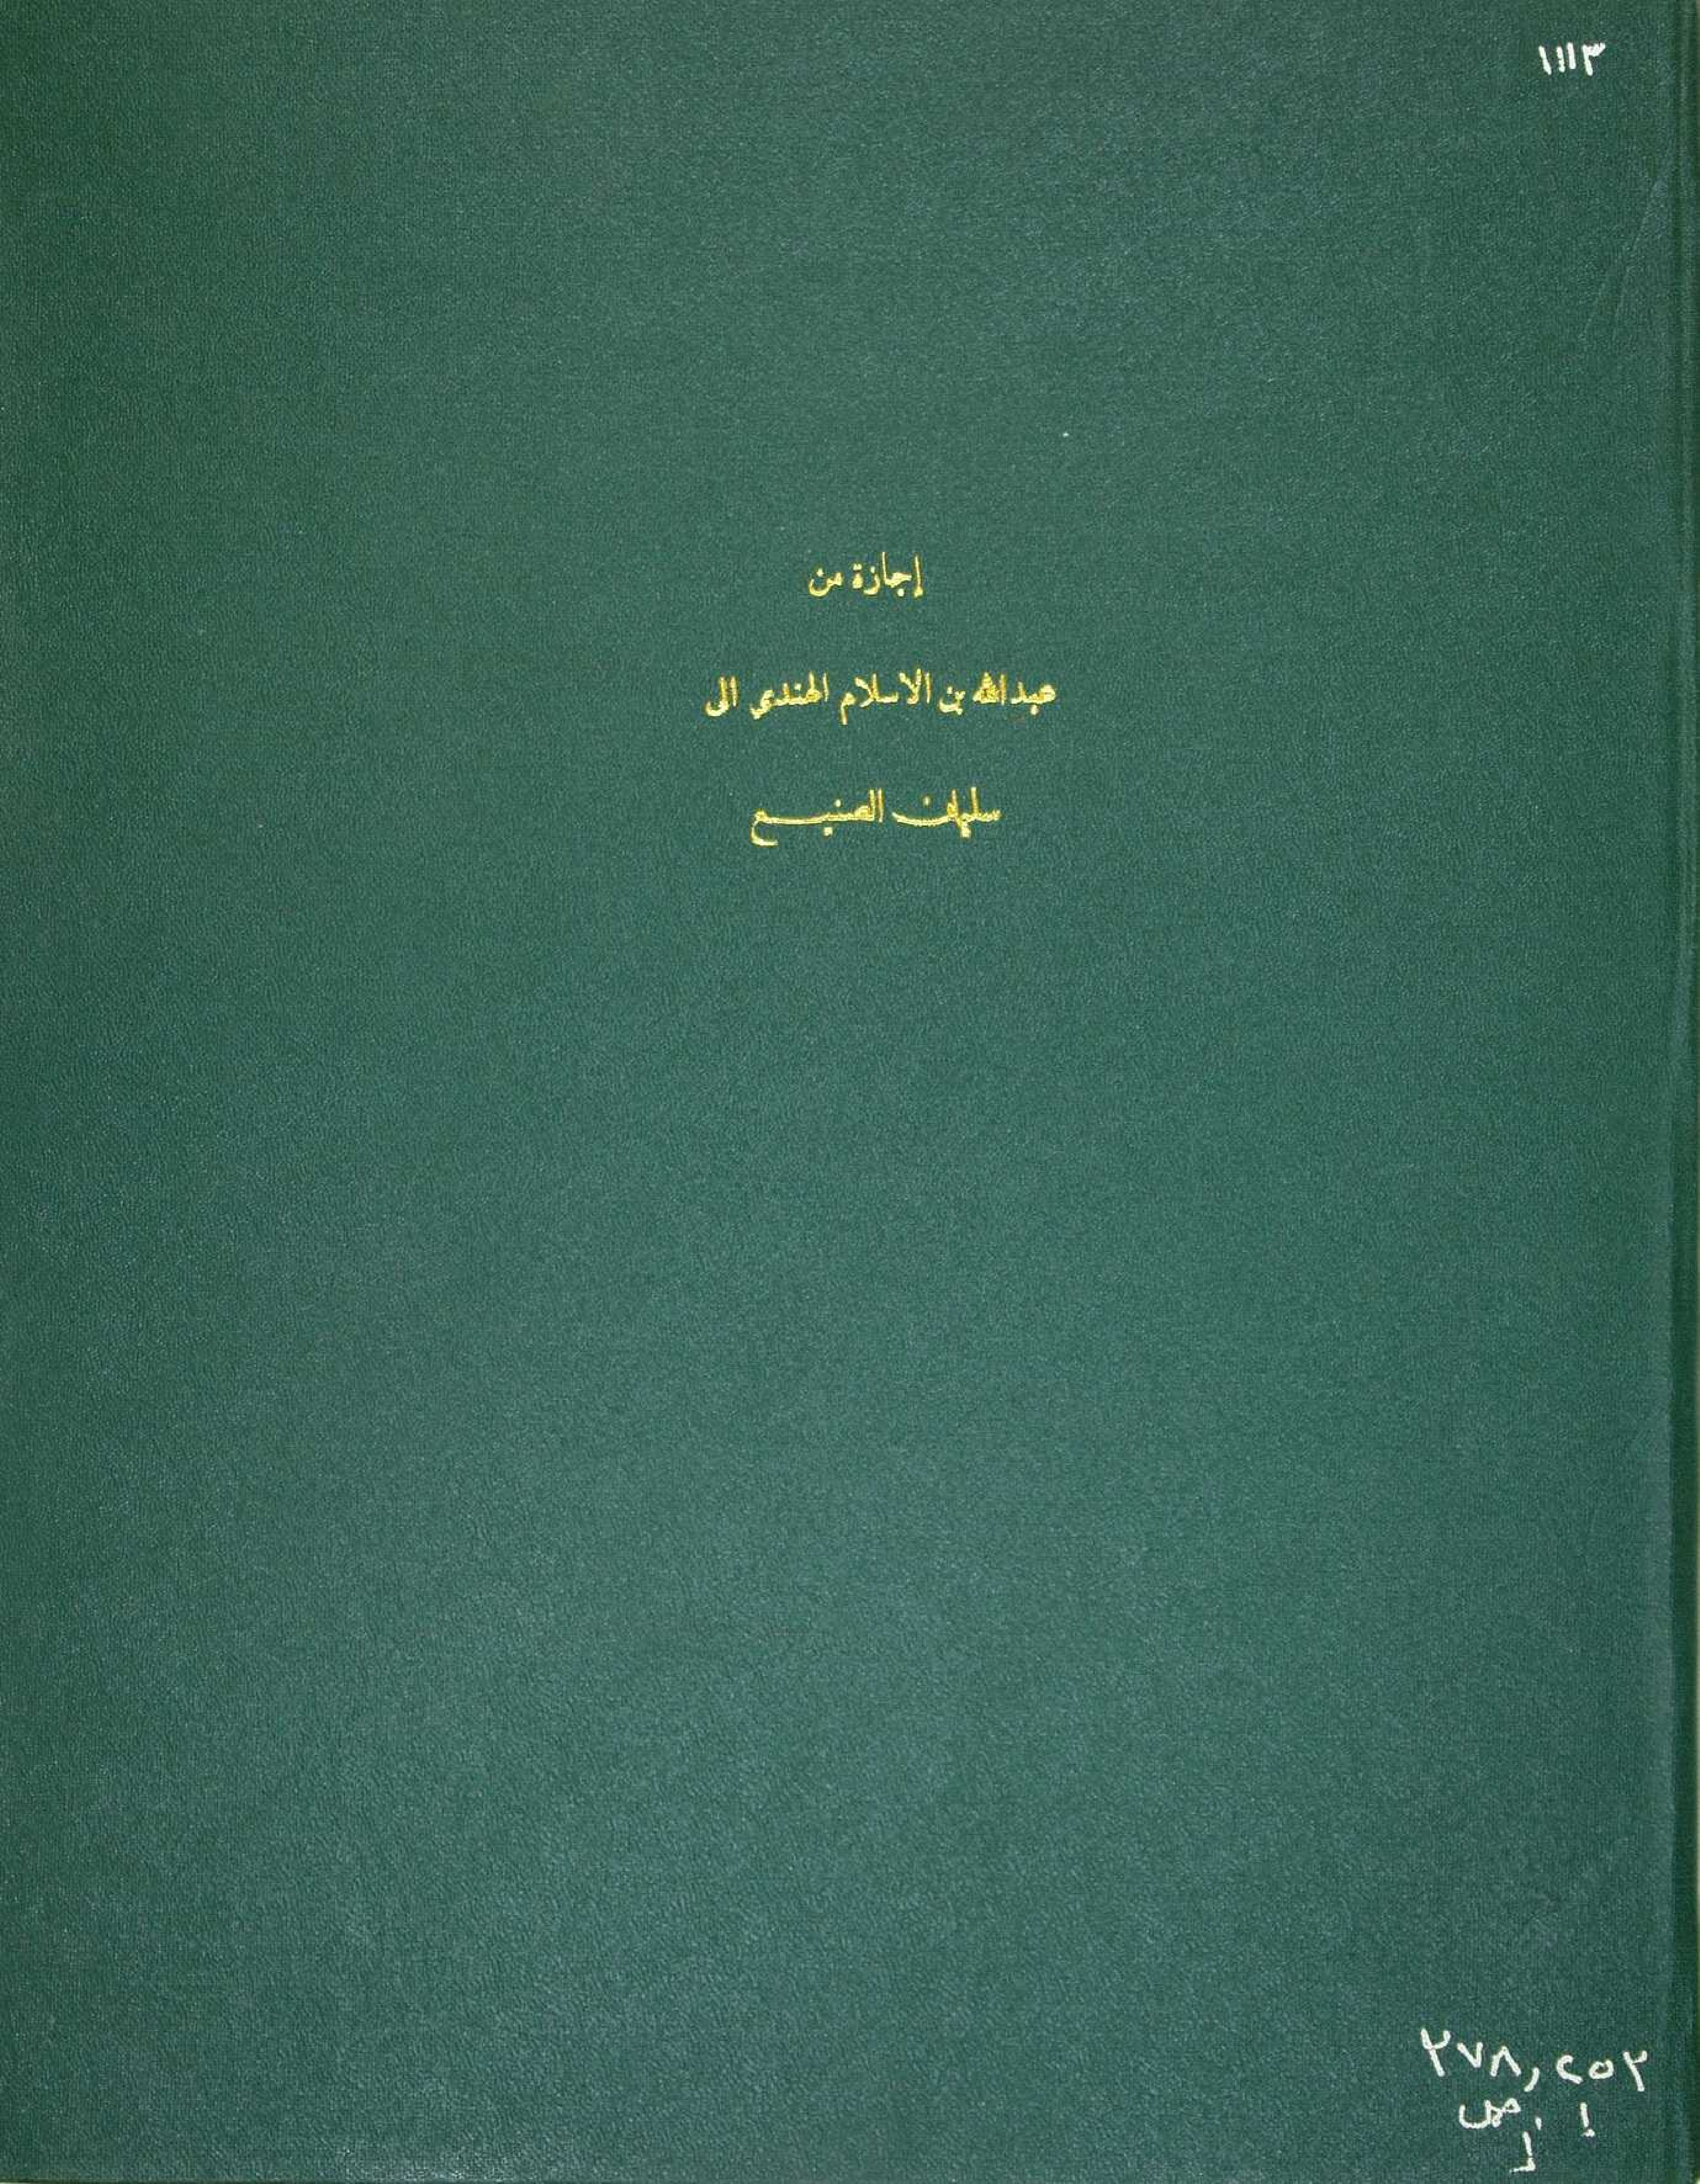 ١١١٣
إجازة من
عبدالله بن الاسلام الهندي الى
سليمان الصنيع
٢٧٨,٢٥٢